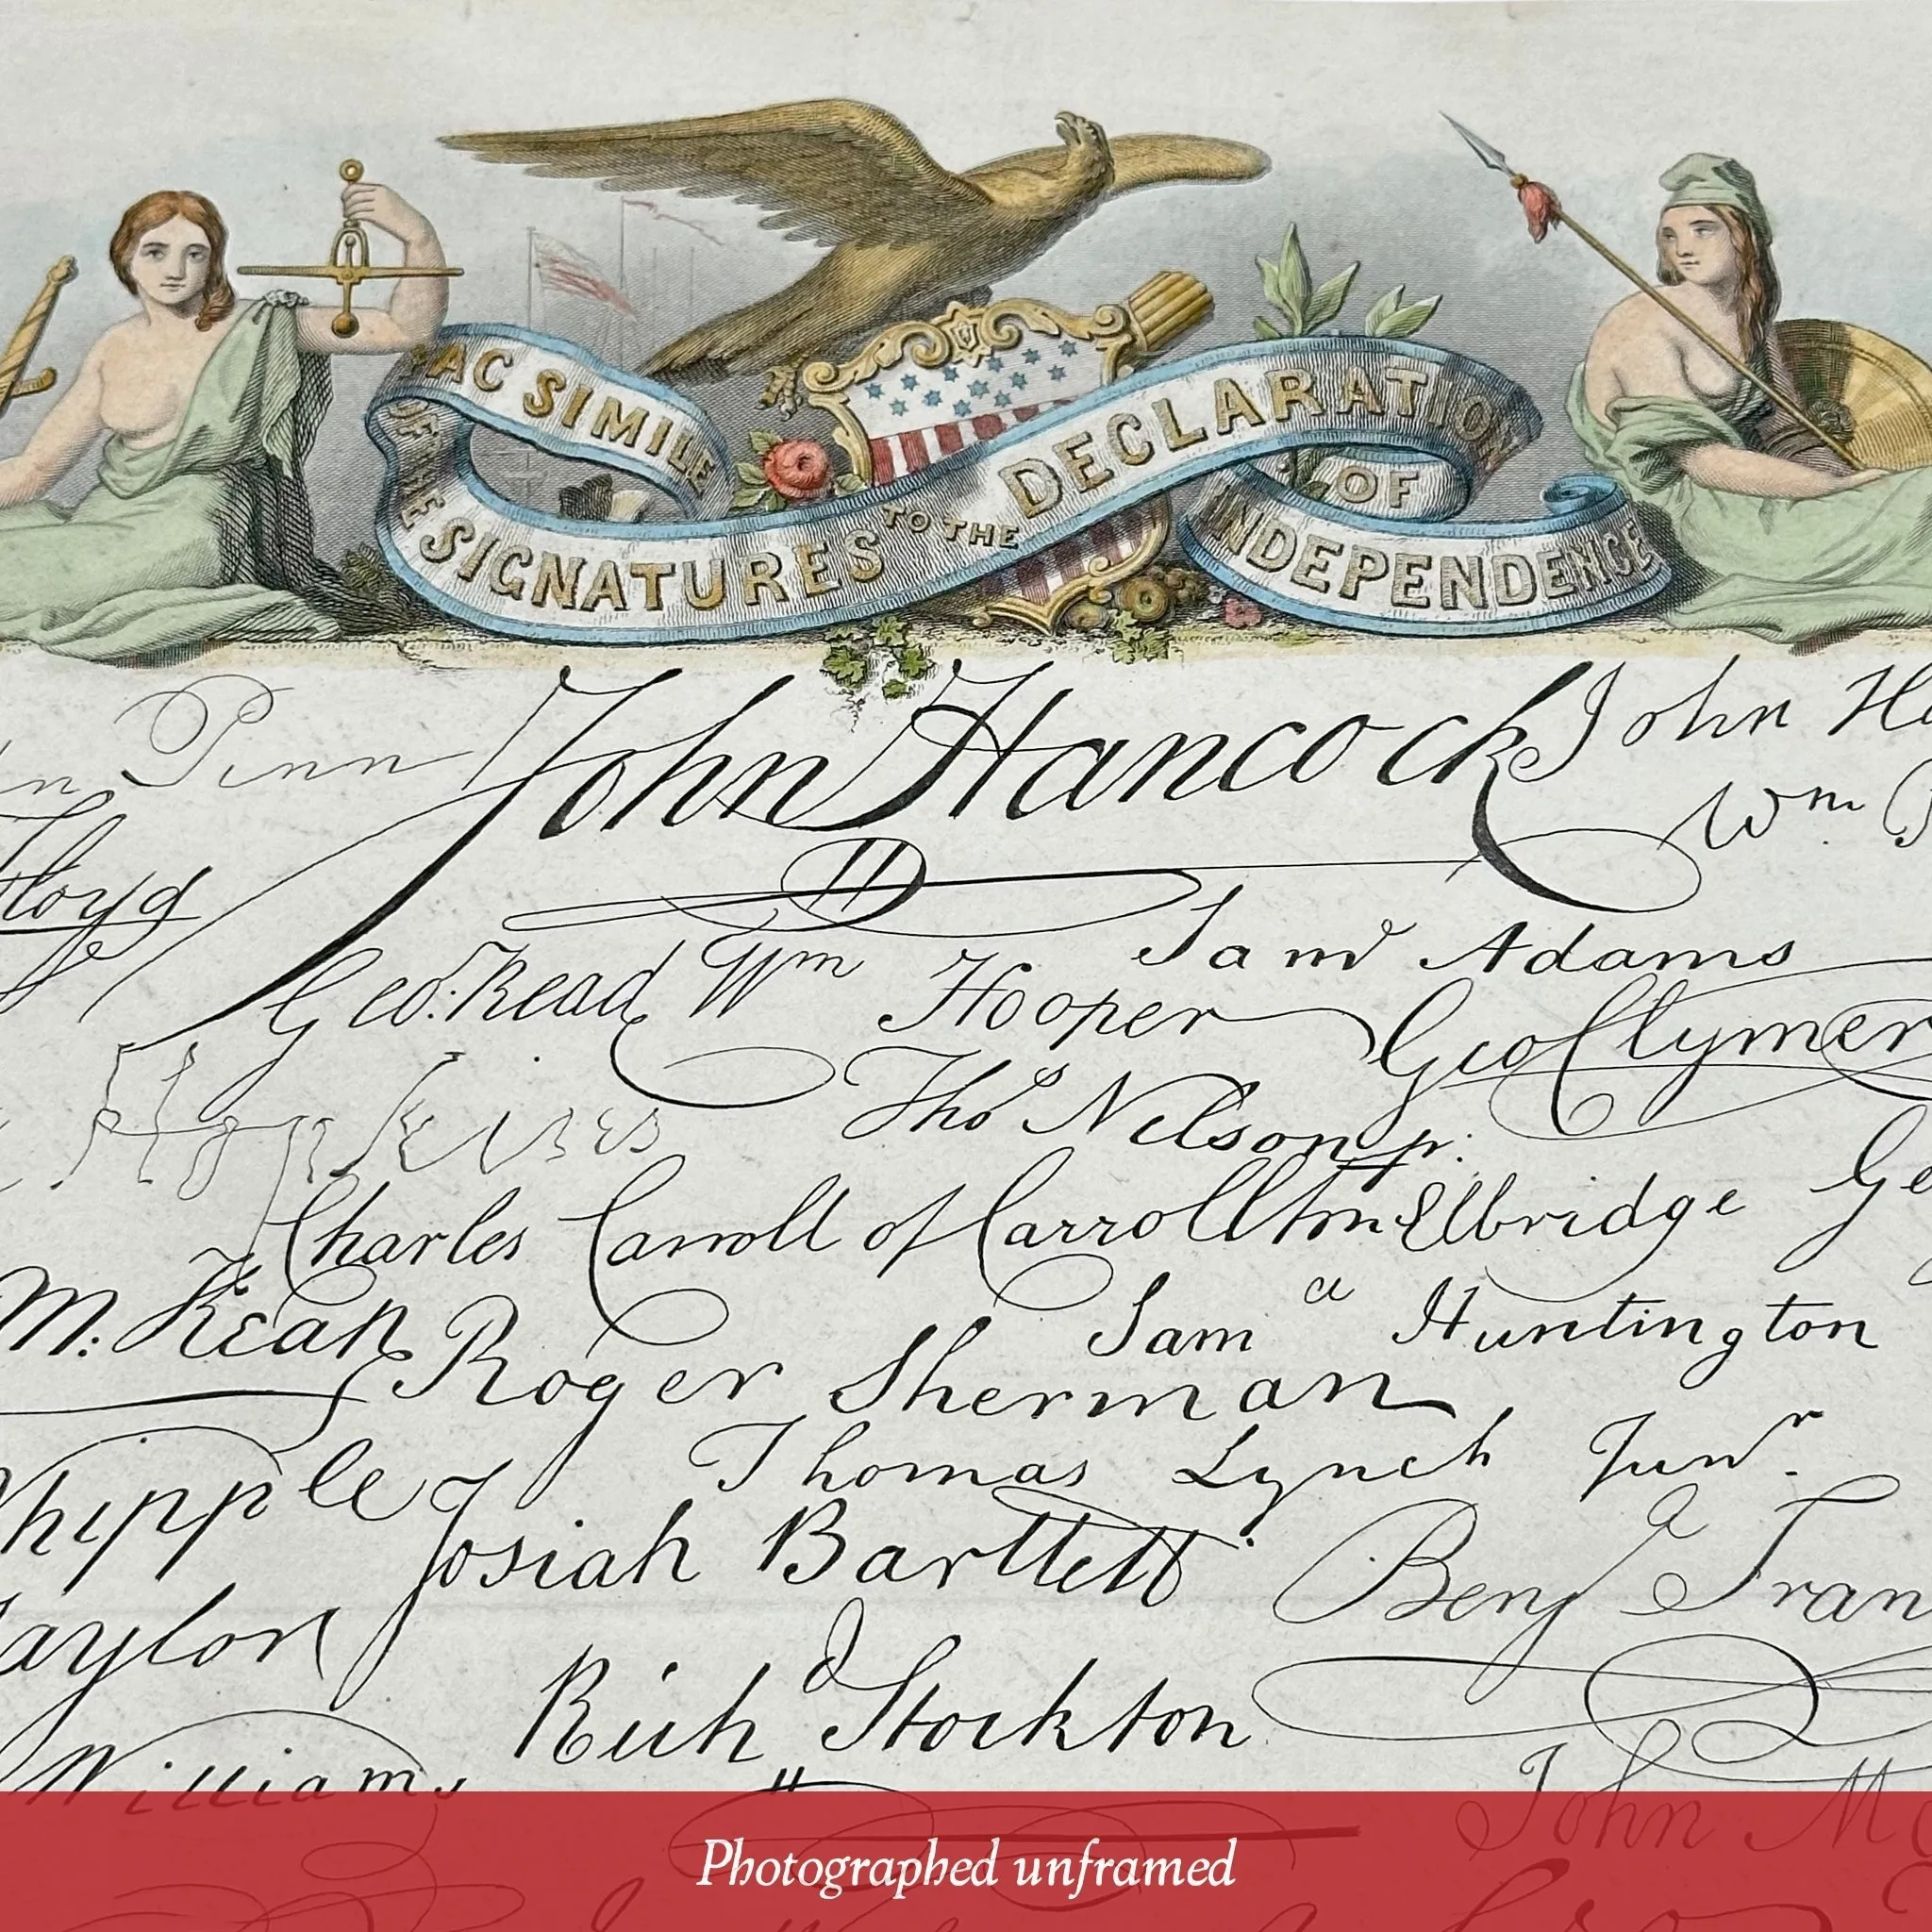 FAC SIMILE
OF THE
SIGNATURES TO THE DECLARATION
OF
INDEPENDENCE
Penn John Hancock John
Wm
Floyd
Saml Adams
Geo. Read Wm Hooper Geo Clymer
Hopkins Thos Nelson jr.
Charles Carroll of Carrollton Elbridge
M: Kean Saml Huntington
Roger Sherman
Whipple Thomas Lynch Junr.
Josiah Bartlett Benja
Taylor
Richd Stockton
Williams John
Photographed unframed